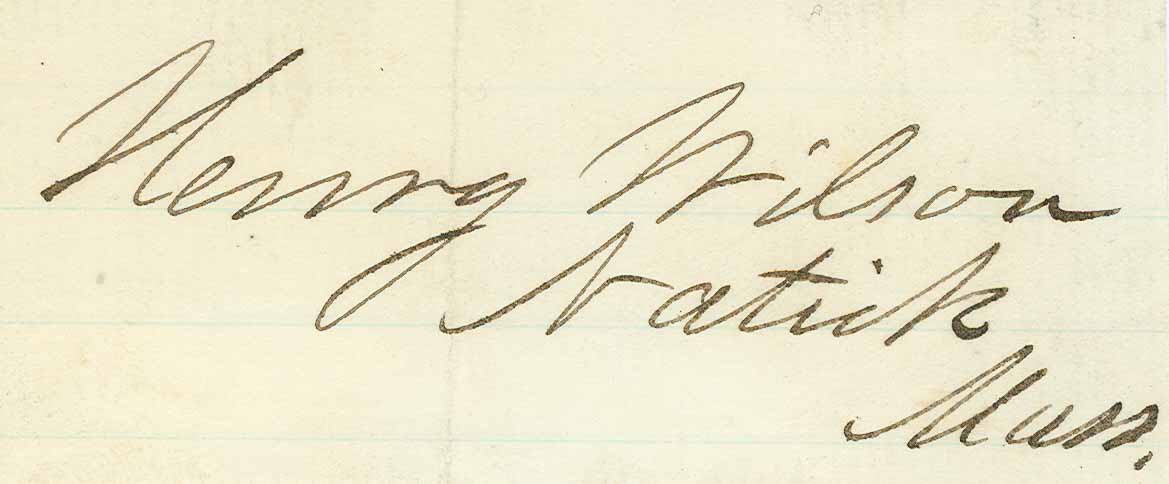 Henry Wilson
Natick
Mass.